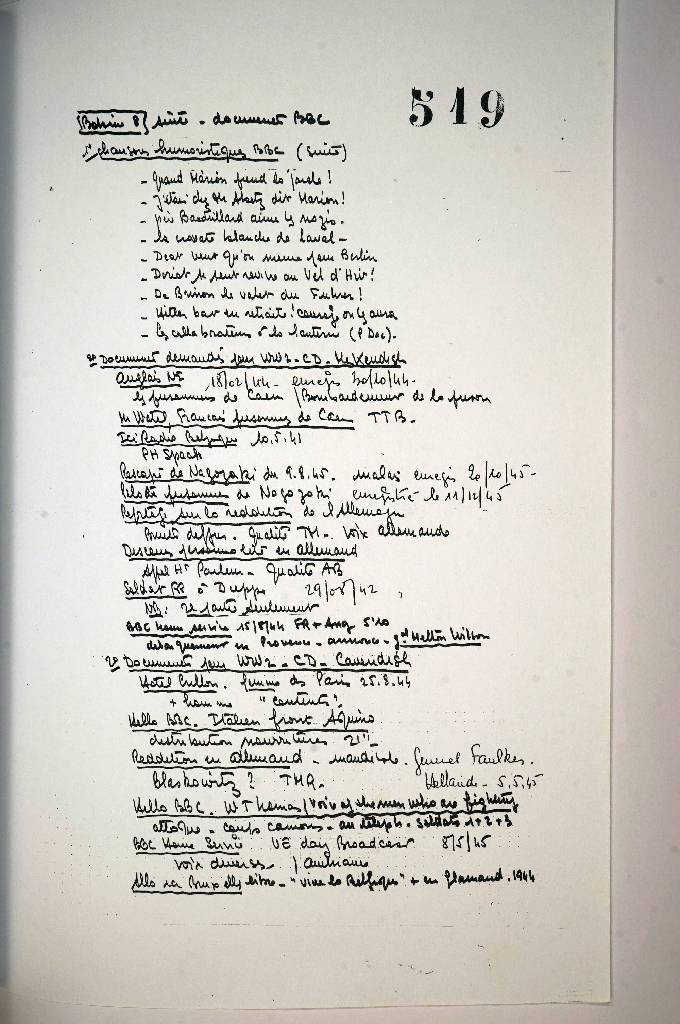 519
suite - documents BBC
1° chansons humoristiques BBC (suite)
- Quand Marion prend la parole !
- dit Marion !
- aime les nazis.
- la cravate blanche de Laval -
- Deat veut qu'on meure pour Berlin
- Doriot se sent revivre au Vel d'Hiv !
- De Brinon le valet du Fuhrer !
- Hitler bat en retraite ! courage on les aura
- les collaborateurs à la lanterne (P Dac).
2° Documents demandés pour WW2 - CD -
Anglais N° 18/02/44 - 30/10/44 -
les prisonniers de Caen / Bombardement de la prison
Français prisonnier de Caen TTB.
Ici Radio Belgique 10.5.41
PH Spaak
Rescapé de Nagazaki du 9.8.45. 20/10/45 -
Pilote prisonnier de Nagazaki enregistré le 11/12/45
sur la reddition de l'Allemagne
Qualité TM - Voix allemande
Discours en allemand
Appel - Qualité AB
Soldat à Dieppe 29/08/42
NB : 2e partie seulement
BBC home service 15/8/44 FR + Ang 5'10
débarquement en Provence - annonce - Wilson
2° Documents pour WW2 - CD - Cavendish
Hotel Crillon. femme de Paris 25.8.44
+ homme "contents"
Hello BBC. Italien front Aquino
distribution nourritures
Reddition en allemand - General Faulkes.
Blaskowitz ? Hollande - 5.5.45
Hello BBC. W Thomas / Voix of the men who are fighting
attaque - coups canons - soldats 1+2+3
BBC Home Service VE day Broadcast 8/5/45
voix diverses / américaine
Allo ici Bruxelles libre - "Vive la Belgique" + en flamand. 1944